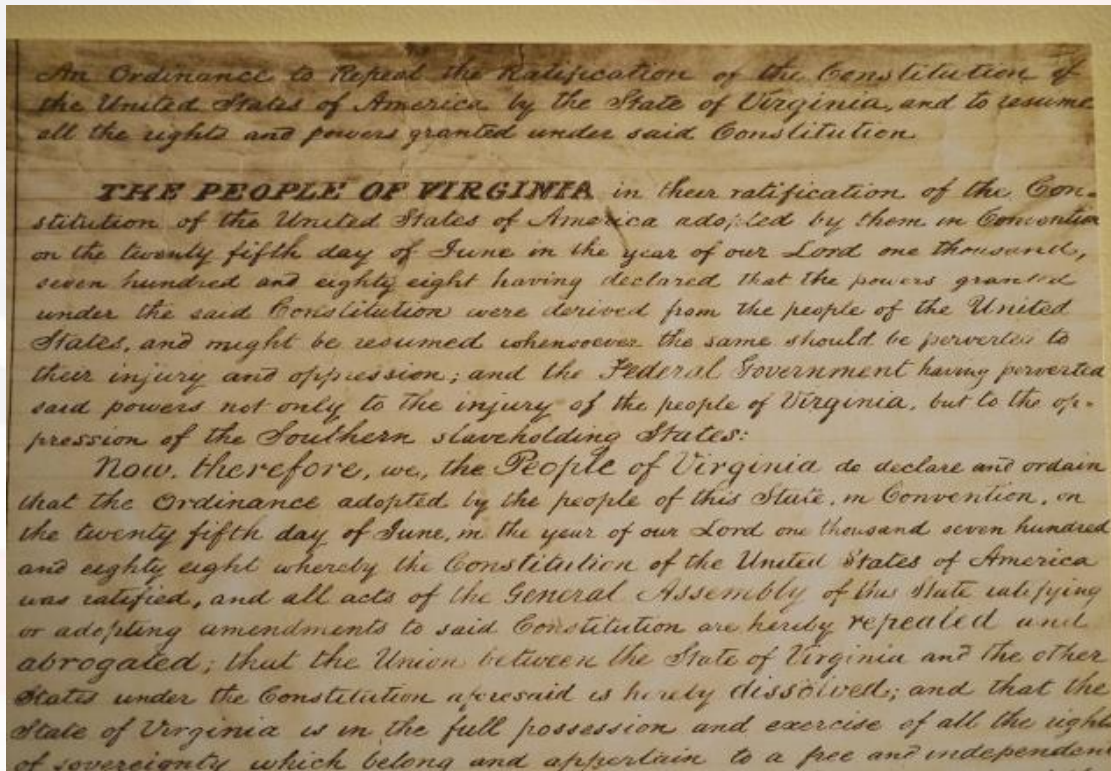 An Ordinance to Repeal the Ratification of the Constitution of
the United States of America by the State of Virginia, and to resume
all the rights and powers granted under said Constitution
THE PEOPLE OF VIRGINIA in their ratification of the Con-
stitution of the United States of America adopted by them in Convention
on the twenty fifth day of June in the year of our Lord one thousand,
seven hundred and eighty eight having declared that the powers granted
under the said Constitution were derived from the people of the United
States, and might be resumed whensoever the same should be perverted to
their injury and oppression; and the Federal Government having perverted
said powers not only to the injury of the people of Virginia, but to the op-
pression of the Southern slaveholding States:
Now, therefore, we, the People of Virginia do declare and ordain
that the Ordinance adopted by the people of this State, in Convention, on
the twenty fifth day of June, in the year of our Lord one thousand seven hundred
and eighty eight whereby the Constitution of the United States of America
was ratified, and all acts of the General Assembly of this State ratifying
or adopting amendments to said Constitution are hereby repealed and
abrogated; that the Union between the State of Virginia and the other
States under the Constitution aforesaid is hereby dissolved; and that the
State of Virginia is in the full possession and exercise of all the rights
of sovereignty which belong and appertain to a free and independent